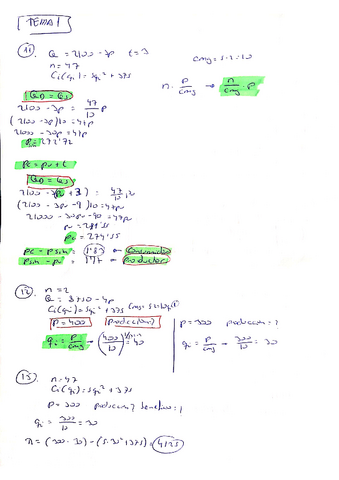 TEMA 1
11. Q = 2100 - 3p t = 3
n = 47
Ci(qi) = 5qi² + 375
Cmg = 5·2 = 10
n · P/Cmg → n/Cmg · P
QD = QS
2100 - 3p = 47/10 p
(2100 - 3p)10 = 47p
21000 - 30p = 47p
P = 272'72
Pc = Pv + t
QD = QS
2100 - 3(Pv + 3) = 47/10
(2100 - 3p - 9)10 = 47p
21000 - 30p - 90 = 47p
P = 271'55
Pc = 274'55
Pc - Psin = 1'83 ← Consumidor
Psin - Pv = 1'17 ← productor
12. n = 2
Ci(qi) = 5qi² + 375
P = 400 producción?
= 40
P = 300 producción = ?
qi = P/Cmg → 300/10 = 30
13. n = 47
Ci(qi) = 5qi² + 375
P = 300 producción? beneficio = ?
qi = 300/10 = 30
π = (300·30) - (5·30² + 375) = 4125